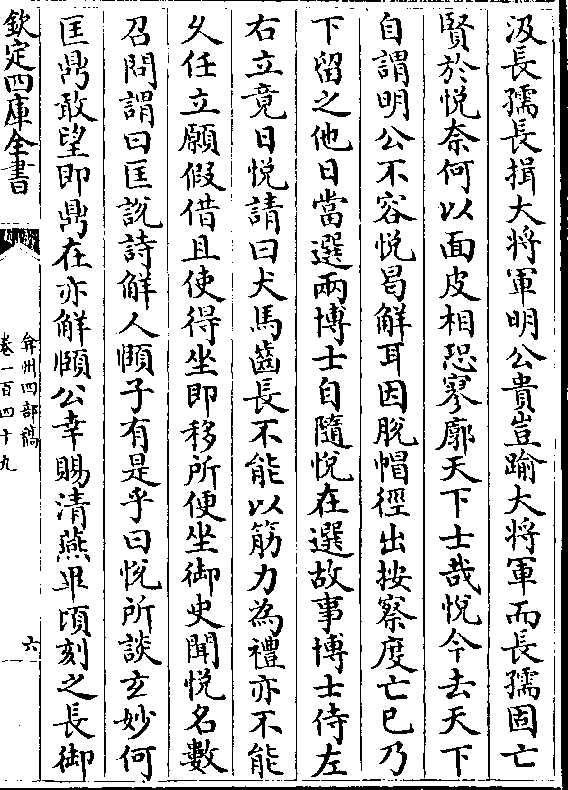 汲長孺長揖大将軍明公貴豈踰大将軍而長孺固亡
賢於悦奈何以面皮相恐寥廓天下士哉悦今去天下
自謂明公不容悦曷解耳因脱帽徑出按察度亡已乃
下留之他日當選兩博士自隨悦在選故事博士侍左
右立竟日悦請曰犬馬齒長不能以筋力為禮亦不能
久任立願假借且使得坐即移所便坐御史聞悦名數
召問謂曰匡説詩解人頤子有是乎曰悦所談玄妙何
匡鼎敢望即鼎在亦解頤公幸賜清燕畢頃刻之長御
欽定四庫全書
弇州四部稿
卷一百四十九
六